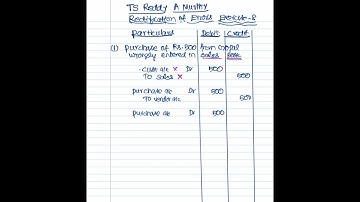 TS Reddy A Murthy
Rectification of Errors Exercise-8
Particulars Debit Credit
(1) purchase of Rs.500 from Gopal
wrongly entered in Sales Book
X Dr 500
To Sales X 500
purchase a/c Dr 500
To 500
purchase a/c Dr 500